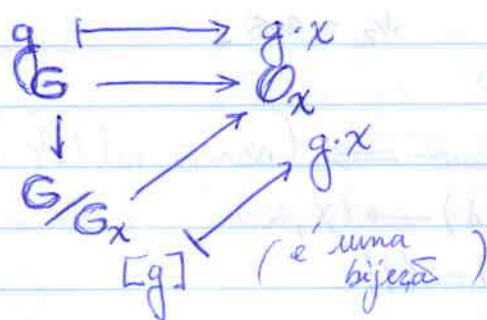 g ⟼ g·x
G ⟶ O_x
↓ ↗ g·x
G/G_x
[g] (é uma
bijeção)